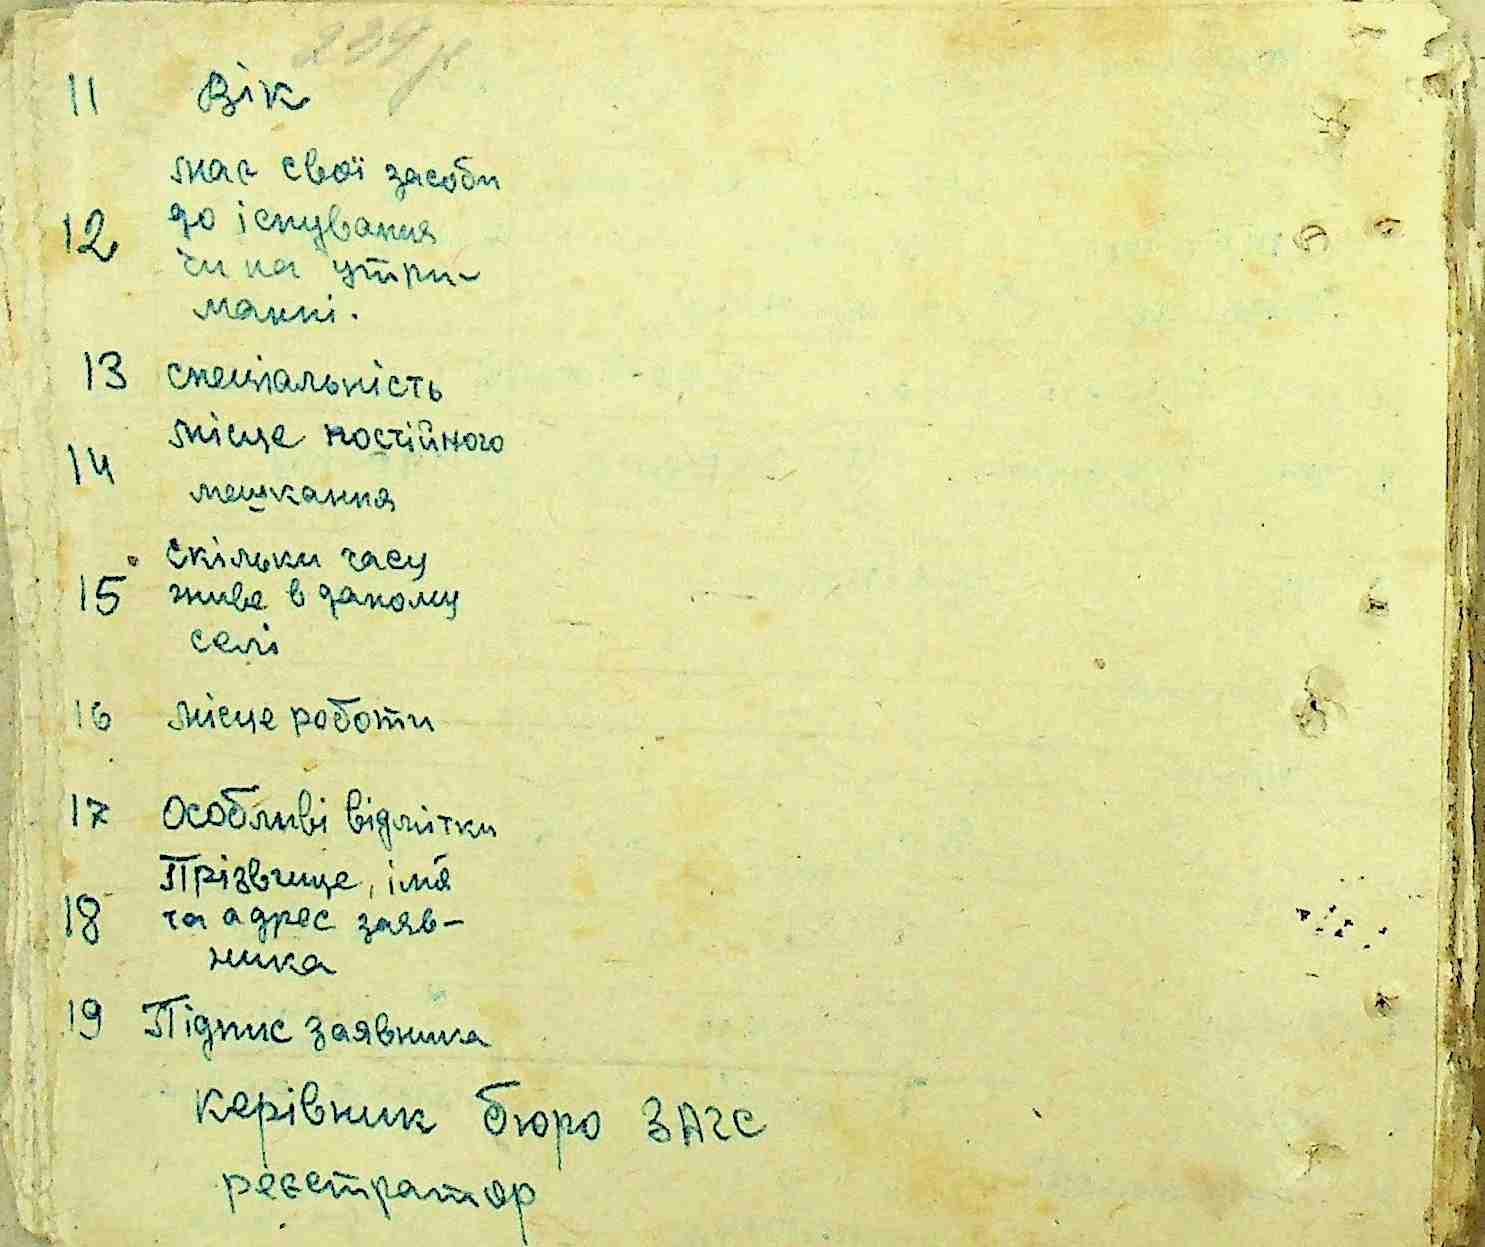 239
11 Вік
має свої засоби
12 до існування
чи на утри-
манні.
13 спеціальність
місце постійного
14
мешкання
скільки часу
15 живе в даному
селі
16 місце роботи
17 Особливі відмітки
Прізвище, імя
18 та адрес заяв-
ника
19 Підпис заявника
Керівник бюро ЗАГС
реєстратор